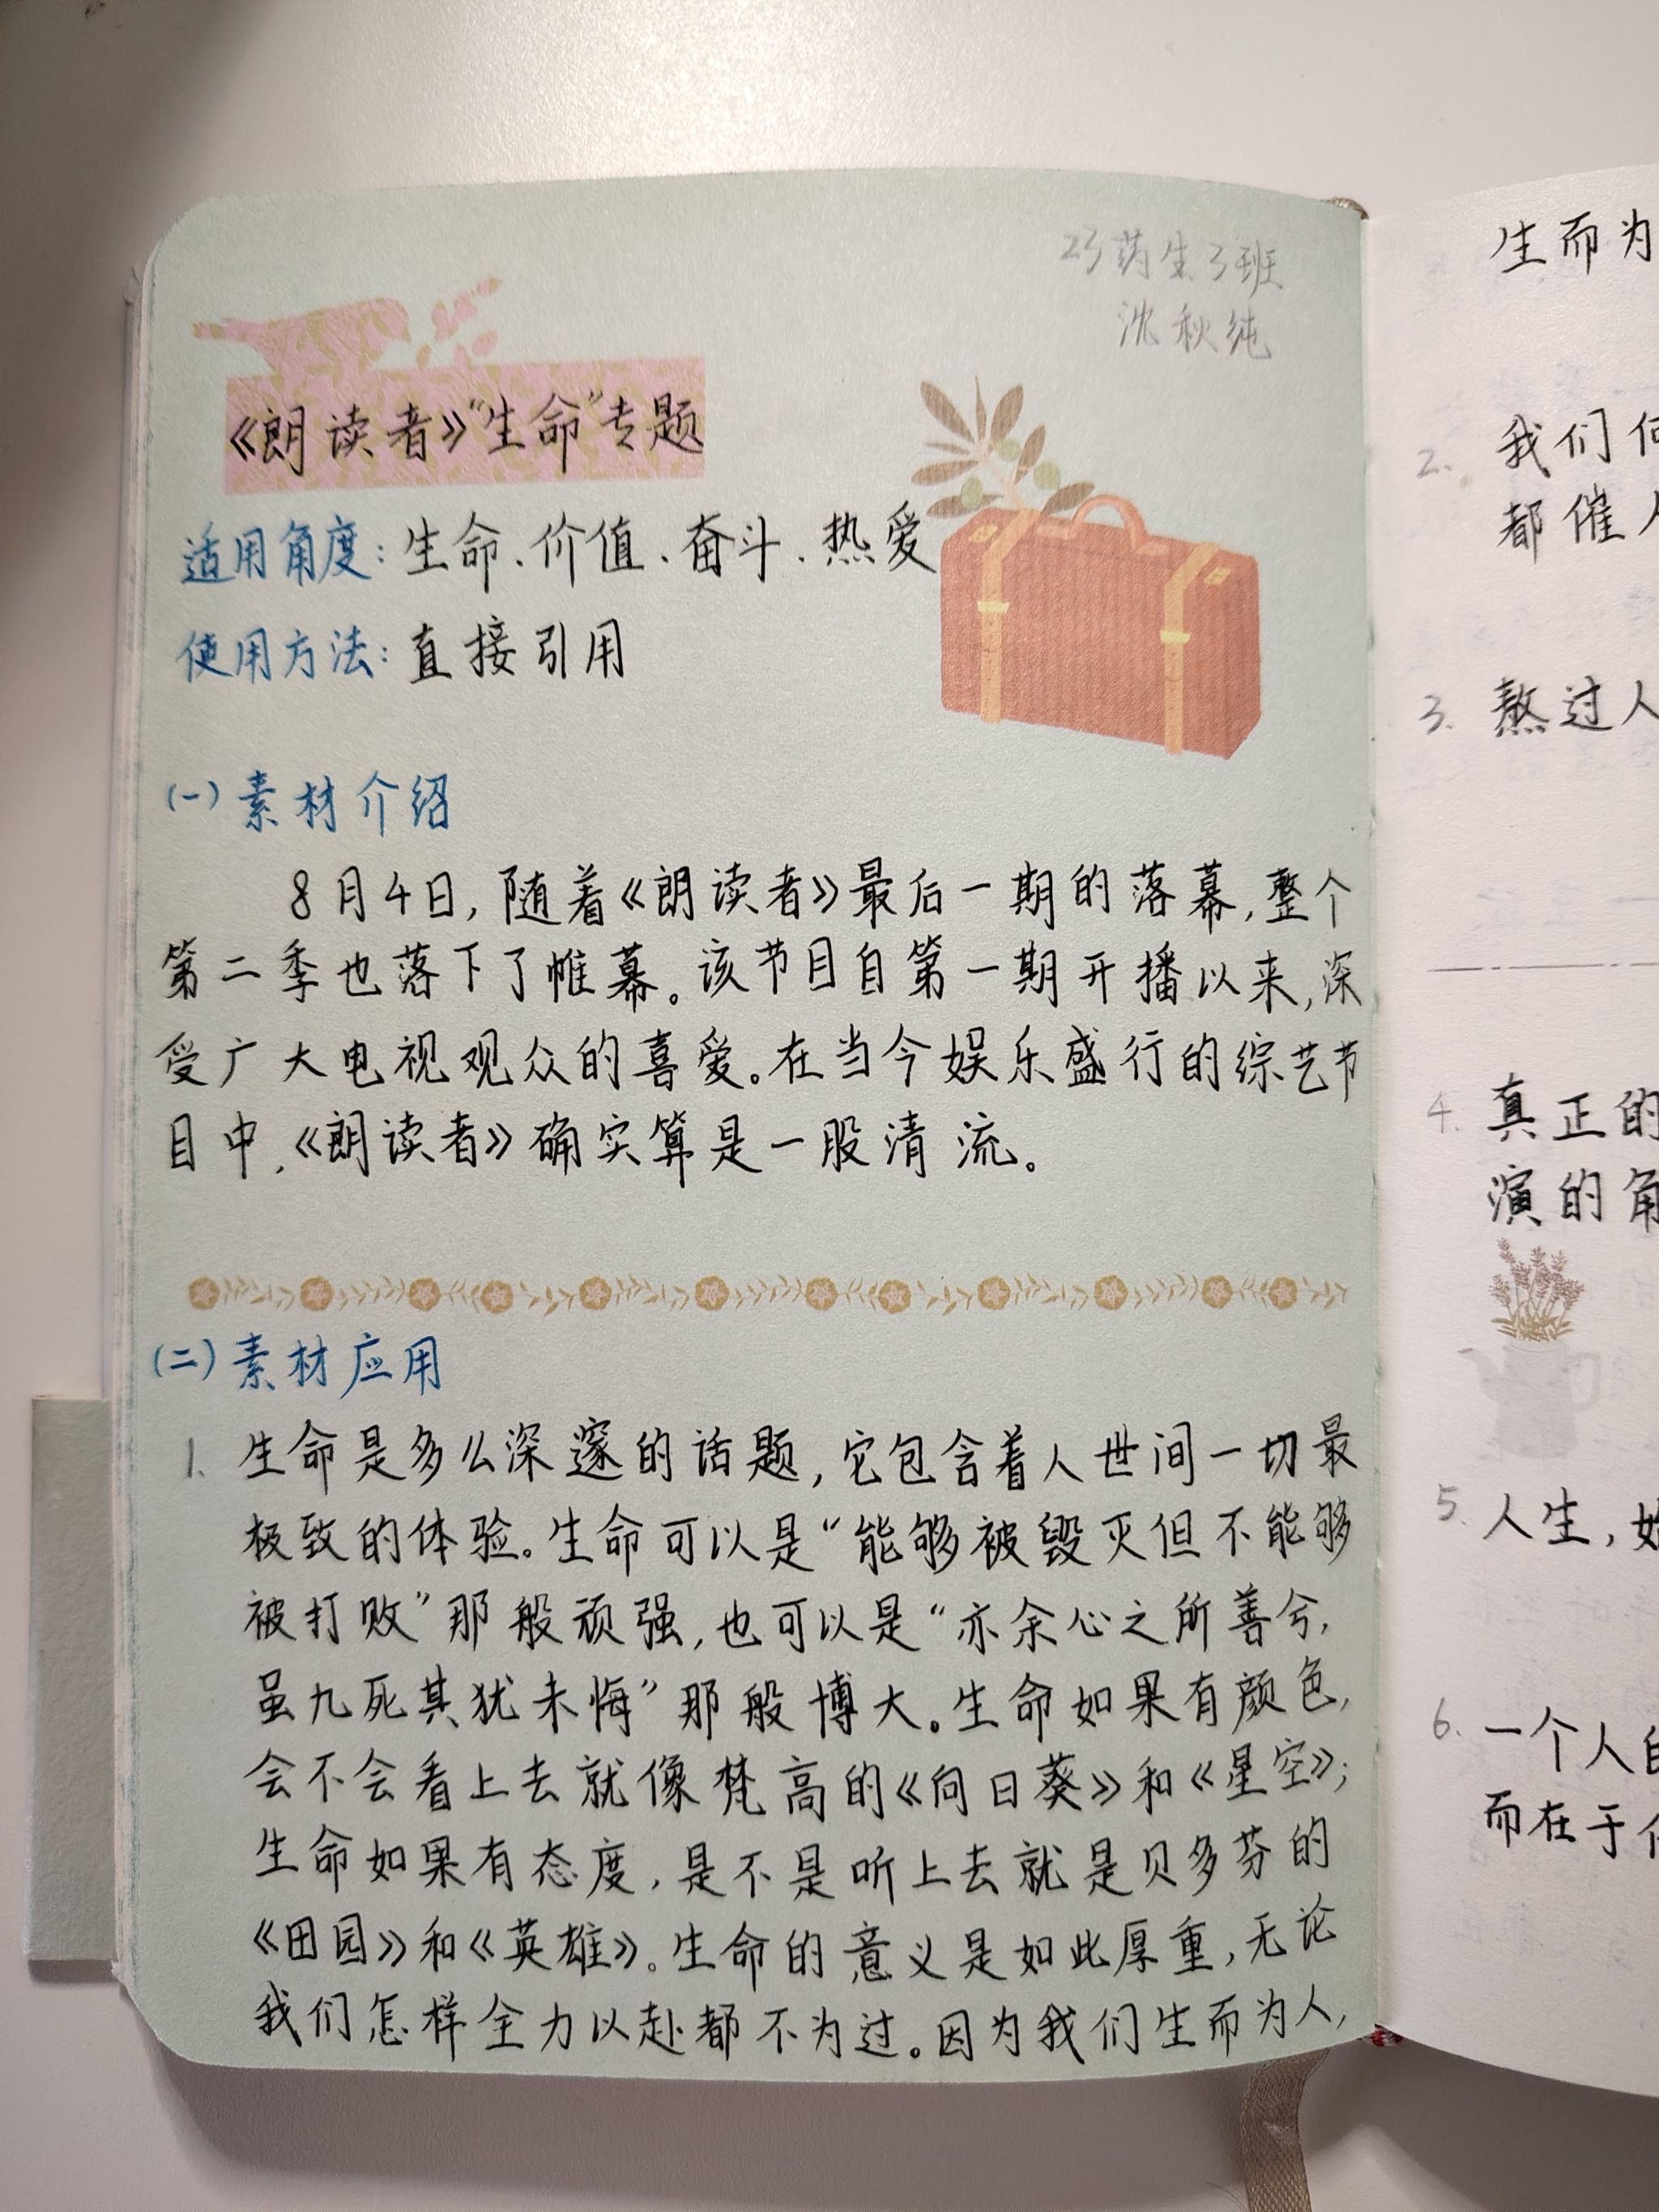 23药生3班
沈秋纯
《朗读者》“生命”专题
适用角度：生命、价值、奋斗、热爱
使用方法：直接引用
(一)素材介绍
8月4日，随着《朗读者》最后一期的落幕，整个
第二季也落下了帷幕。该节目自第一期开播以来，深
受广大电视观众的喜爱。在当今娱乐盛行的综艺节
目中，《朗读者》确实算是一股清流。
(二)素材应用
1. 生命是多么深邃的话题，它包含着人世间一切最
极致的体验。生命可以是“能够被毁灭但不能够
被打败”那般顽强，也可以是“亦余心之所善兮，
虽九死其犹未悔”那般博大。生命如果有颜色，
会不会看上去就像梵高的《向日葵》和《星空》；
生命如果有态度，是不是听上去就是贝多芬的
《田园》和《英雄》。生命的意义是如此厚重，无论
我们怎样全力以赴都不为过。因为我们生而为人，
生而为
2. 我们
都催
3. 熬过人
4. 真正的
演的角
5. 人生，
6. 一个人
而在于